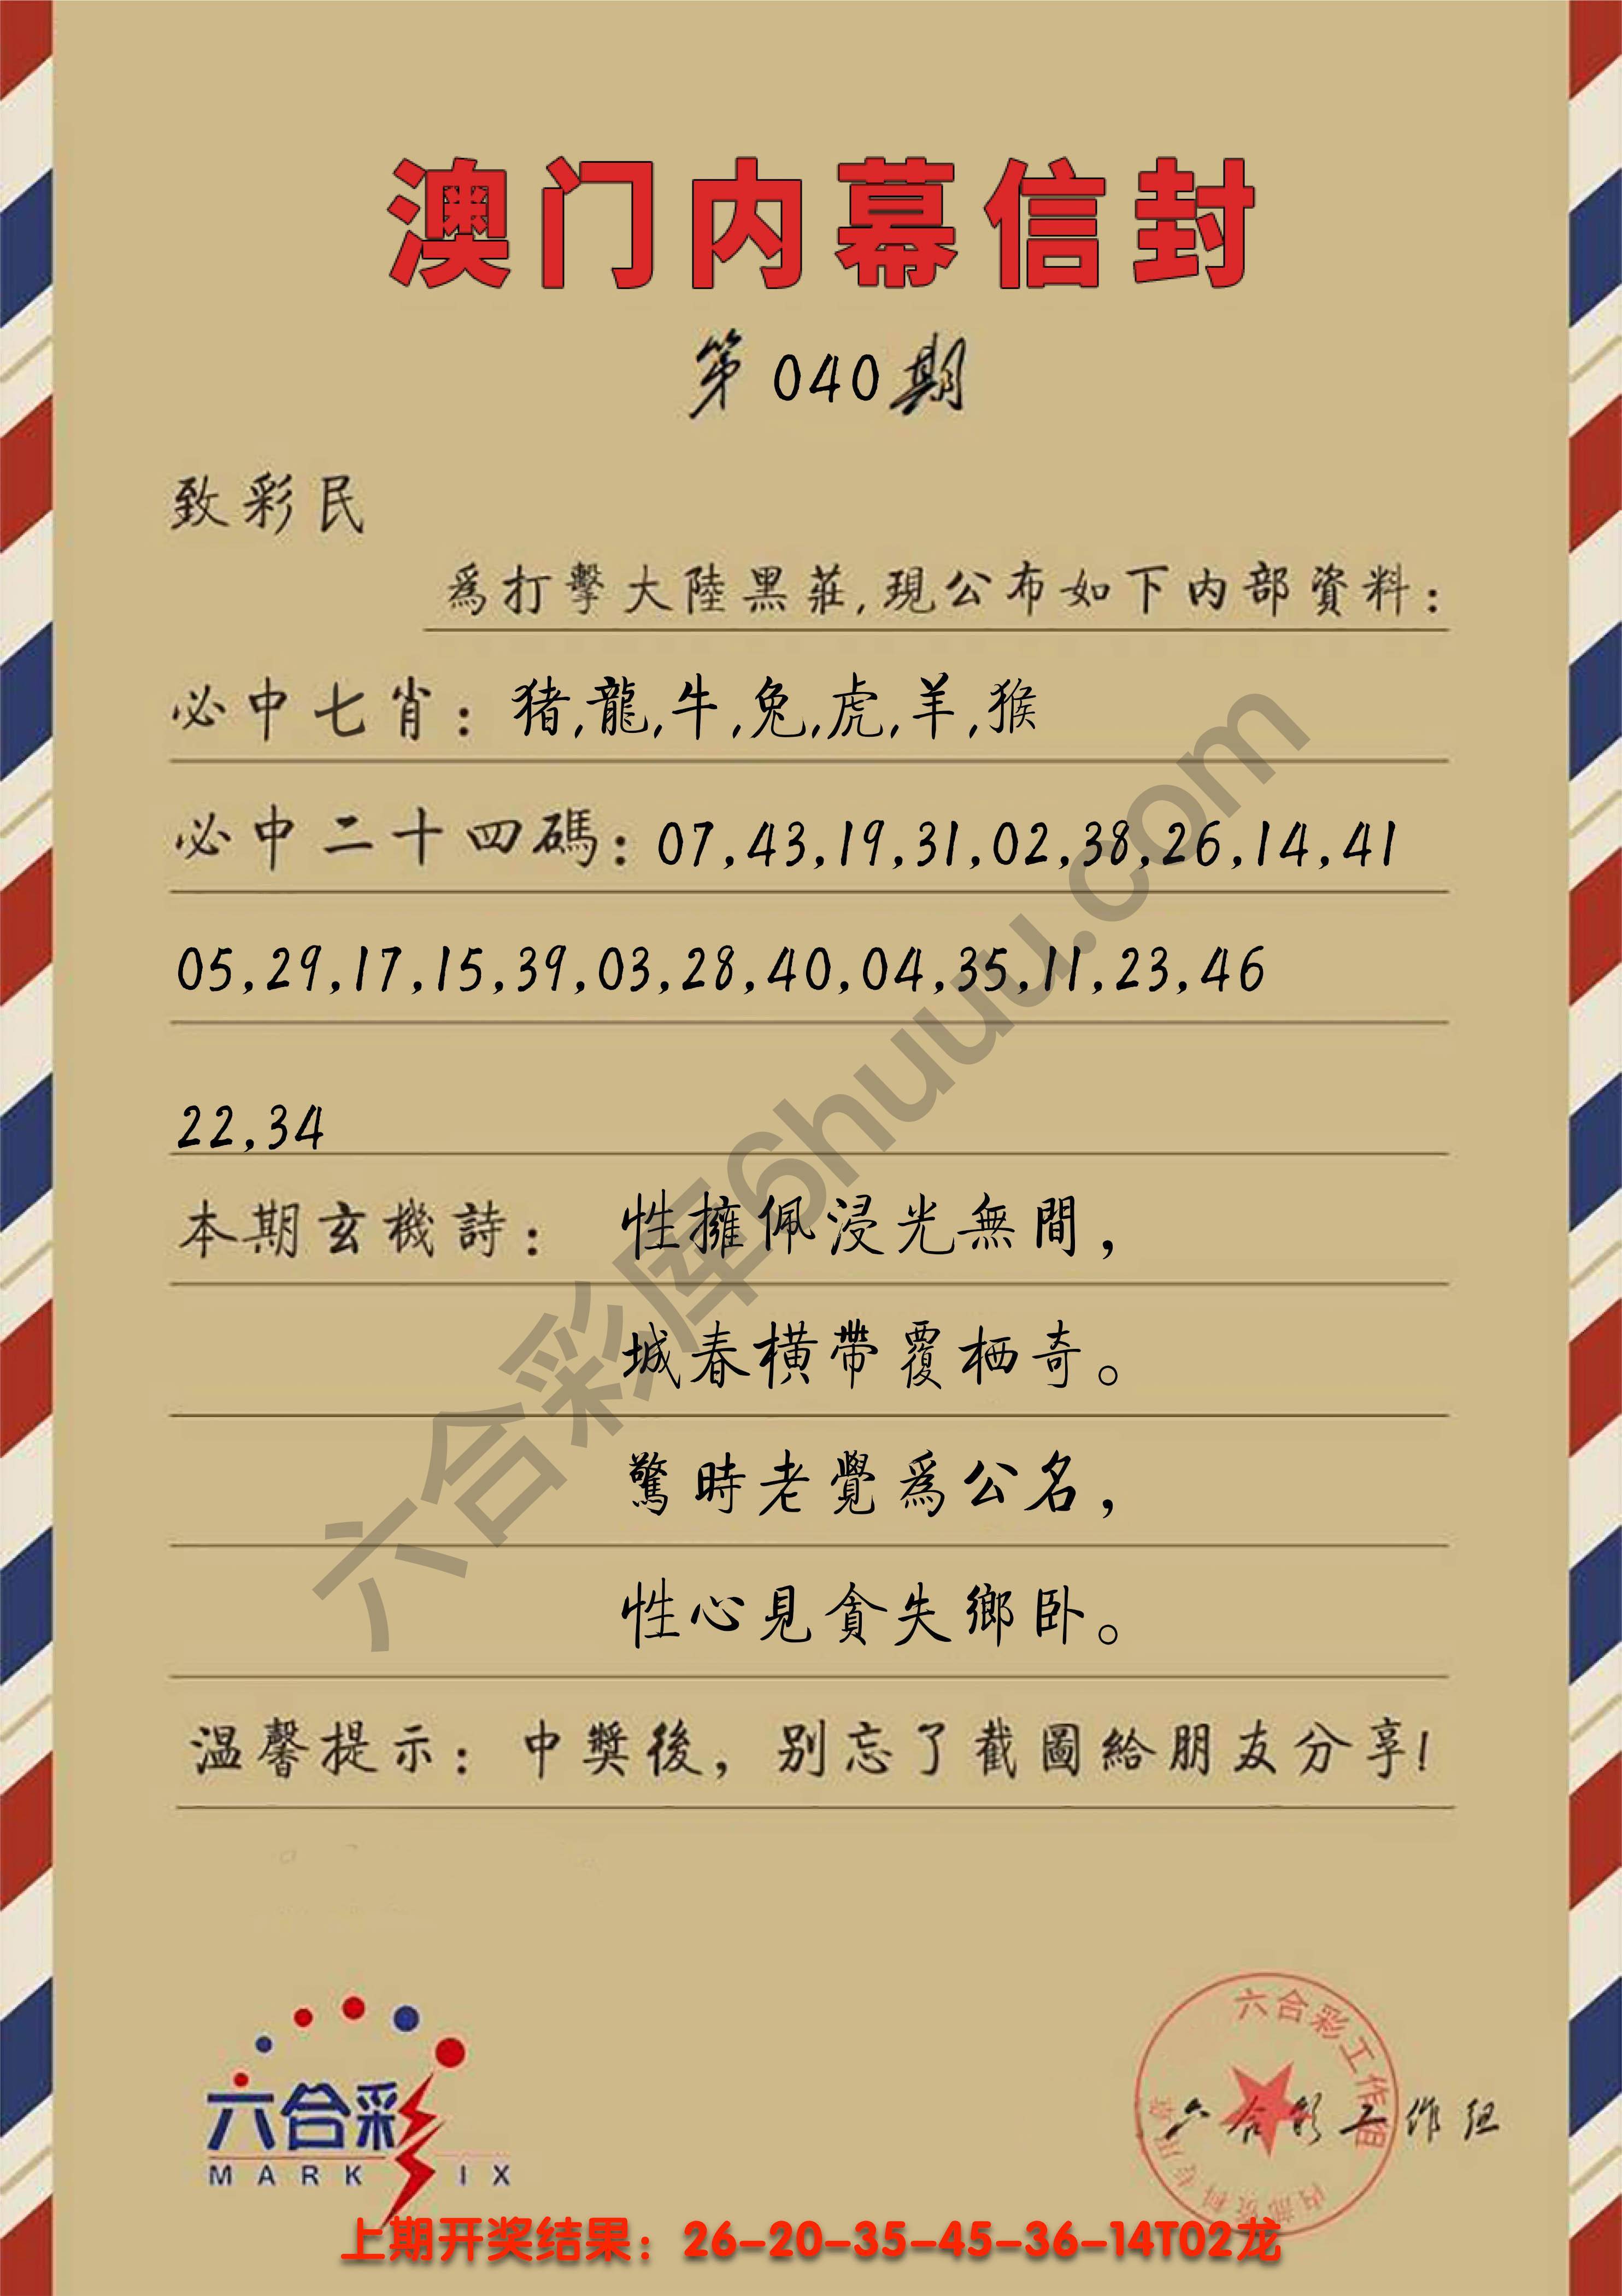 澳门内幕信封
第040期
致彩民
爲打擊大陸黑莊,現公布如下内部資料:
必中七肖: 猪,龍,牛,兔,虎,羊,猴
必中二十四碼: 07,43,19,31,02,38,26,14,41
05,29,17,15,39,03,28,40,04,35,11,23,46
22,34
本期玄機詩: 性擁佩浸光無間,
城春横帶覆栖奇。
驚時老覺爲公名,
性心見貪失鄉卧。
温馨提示: 中獎後, 别忘了截圖給朋友分享!
六合彩库6huuu.com
六合彩
MARK IX
六合彩工作组
内部资料专用章
六合彩工作组
上期开奖结果: 26-20-35-45-36-14T02龙